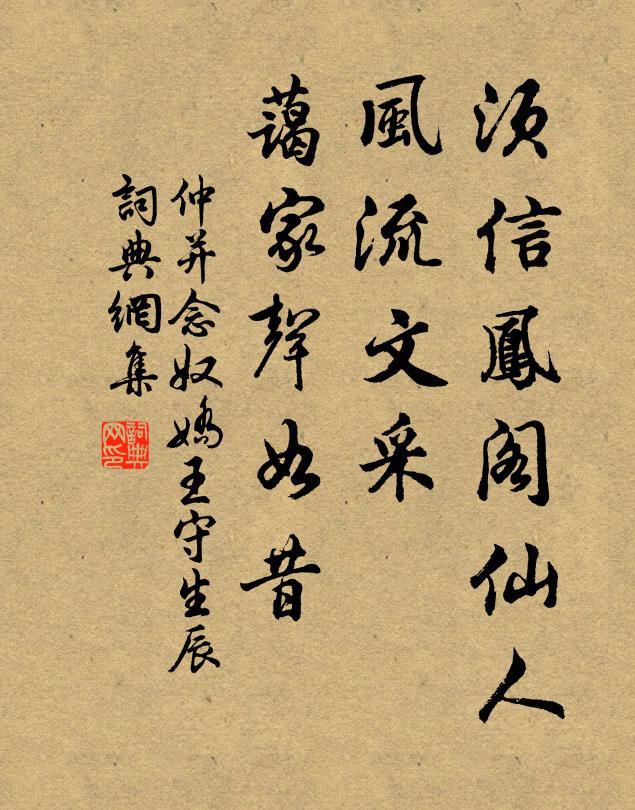 須信鳳閣仙人
風流文采
藹家聲如昔
仲并念奴嬌王守生辰
詞典網集
詞典网印